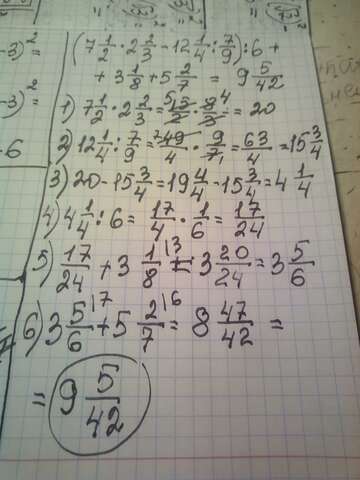 -3)²=
-3)²=
-6
(7 1/2 · 2 2/3 - 12 1/4 : 7/9) : 6 +
+ 3 1/8 + 5 2/7 = 9 5/42
1) 7 1/2 · 2 2/3 = 15/2 · 8/3 = 20
2) 12 1/4 : 7/9 = 49/4 · 9/7 = 63/4 = 15 3/4
3) 20 - 15 3/4 = 19 4/4 - 15 3/4 = 4 1/4
4) 4 1/4 : 6 = 17/4 · 1/6 = 17/24
5) 17/24 + 3 1/8 |3 = 3 20/24 = 3 5/6
6) 3 5/6 |7 + 5 2/7 |6 = 8 47/42 =
= 9 5/42